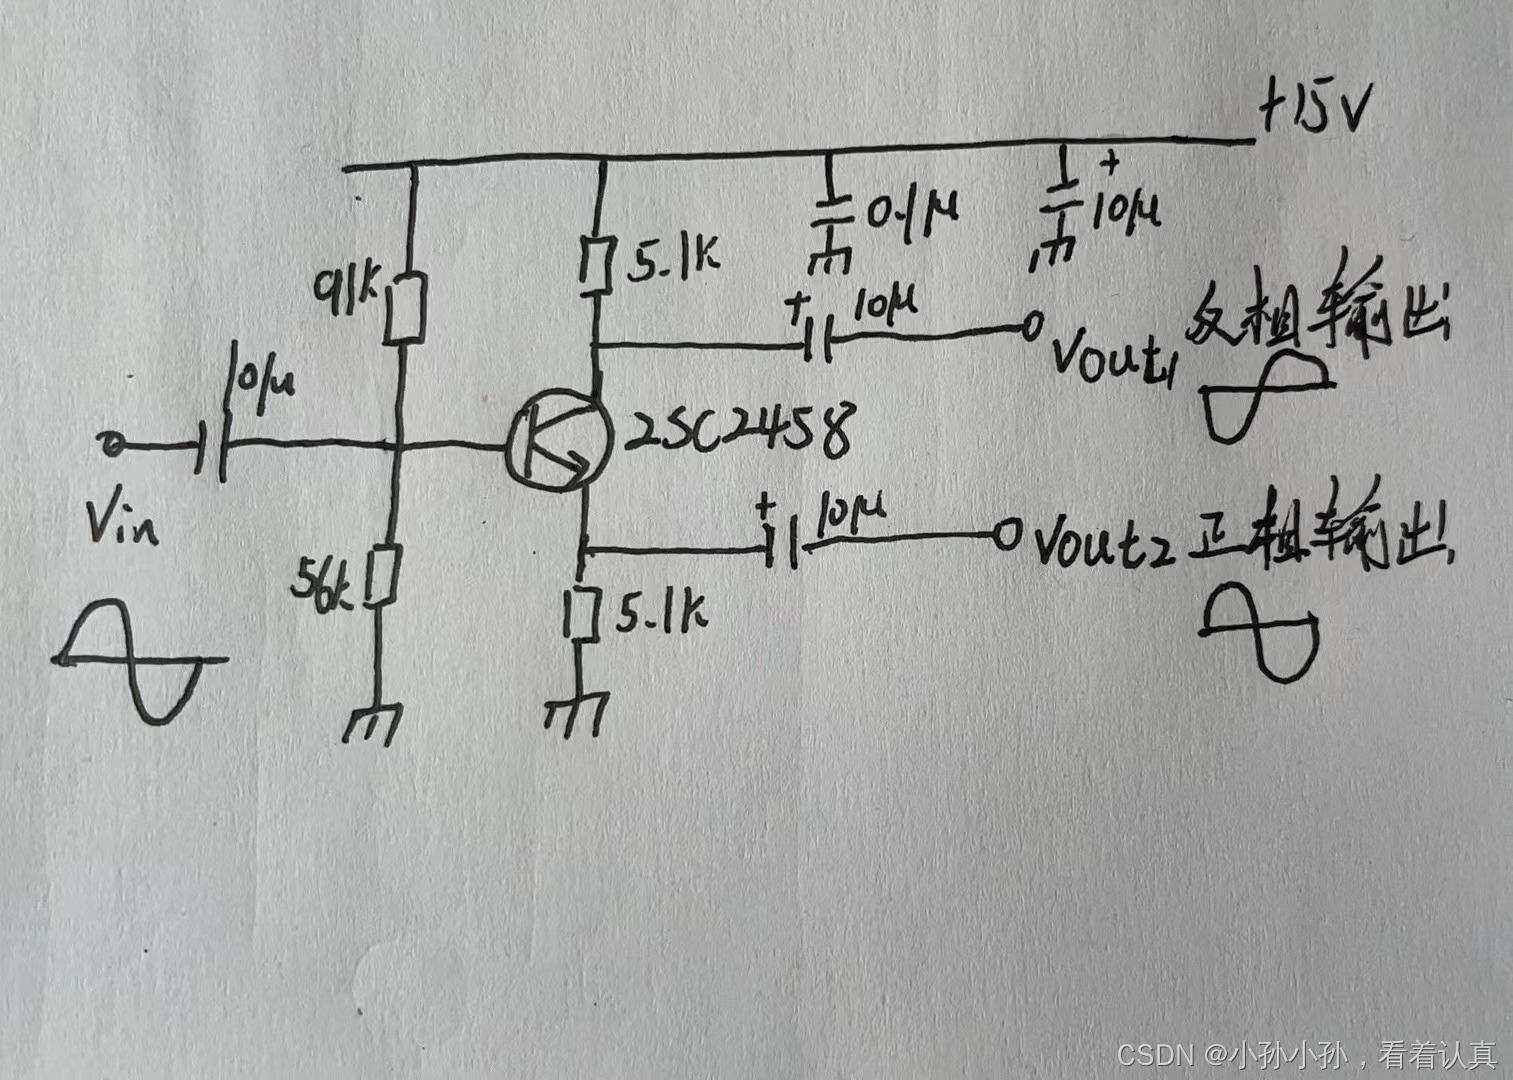 +15V
0.1μ
+
10μ
5.1K
91K
+
10μ
Vout1 反相输出
10μ
2SC2458
+
10μ
Vout2 正相输出
Vin
56k
5.1K
CSDN @小孙小孙，看着认真